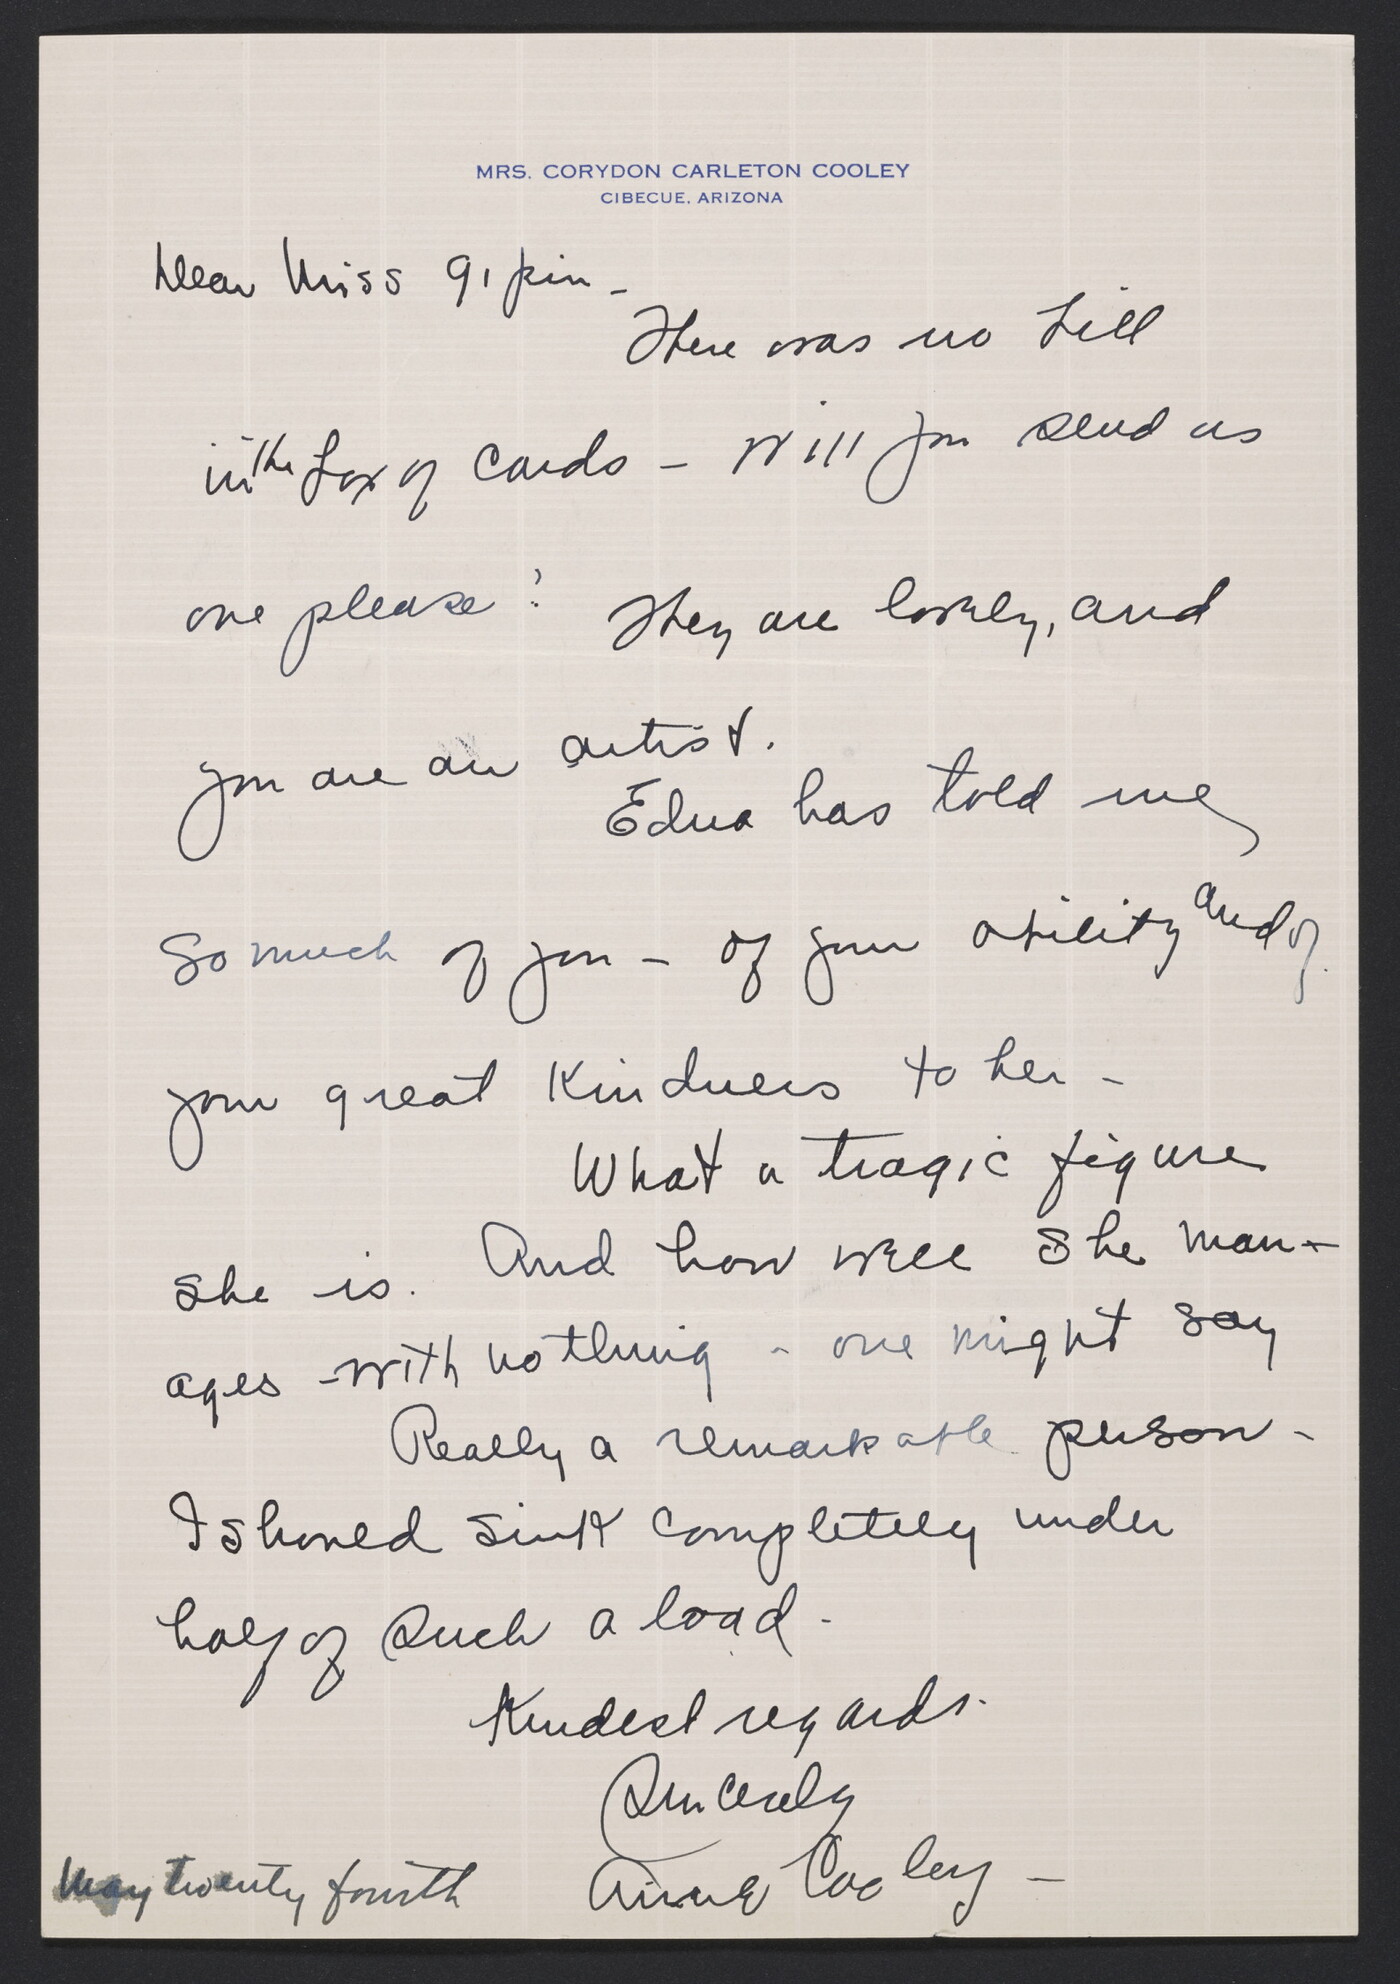 MRS. CORYDON CARLETON COOLEY
CIBECUE, ARIZONA
Dear Miss Gilpin –
There was no bill
in the box of cards – Will you send us
one please? They are lovely, and
you are an artist.
Edna has told me
so much of you – of your ability and of
your great kindness to her –
What a tragic figure
she is. And how well she man-
ages – with nothing – one might say
Really a remarkable person –
I should sink completely under
half of such a load –
Kindest regards.
Sincerely
Anne Cooley –
May twenty fourth